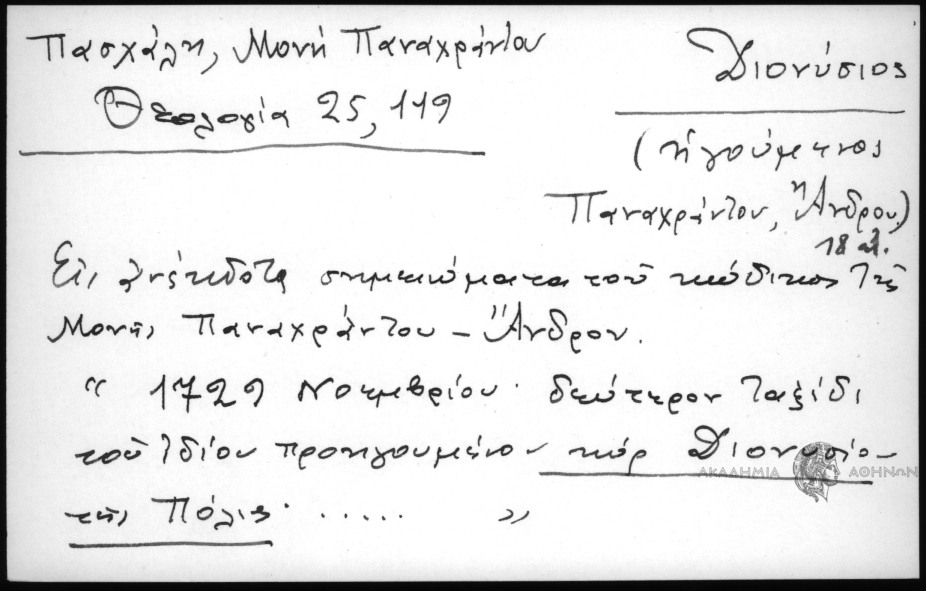 Πασχάλη, Μονή Παναχράντου
Θεολογία 25, 119
Διονύσιος
(ἡγούμενος
Παναχράντου, Ἄνδρου)
18 αἰ.
Εἰς ἀνέκδοτα σημειώματα τοῦ κώδικος τῆς
Μονῆς Παναχράντου – Ἄνδρου.
“ 1729 Νοεμβρίου · δεύτερον ταξίδι
τοῦ ἰδίου προηγουμένου κύρ Διονυσίου
τῆς Πόλις · ..... ”
ΑΚΑΔΗΜΙΑ ΑΘΗΝΩΝ